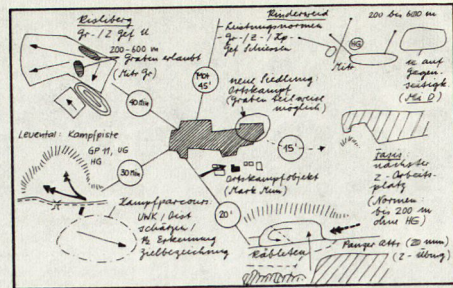 Risliberg
Gr-/Z Gef U
200-600 m
Graben erlaubt
(Mitr Gr)
40 Min
Mot
45'
Rinderweid
Leistungsnormen
Gr-/Z-/Kp-
Gef Schiessen
Mitr
HG
200 bis 600 m
auf
Gegen-
seitigk.
(Mi D)
neue Siedlung
Ortskampf
(Graben teilweise
möglich)
15'
Leuental: Kampfpiste
GP 11, UG
HG
30 Min
Ortskampfobjekt
(Mark Mun)
nächster
Z-Arbeits-
platz
(Normen
bis 200 m
ohne HG)
Kampfparcours
UNK / Dist
schätzen /
Pz Erkennung
Zielbezeichnung
20'
Räbleten
Panzer Attr (20 mm)
(Z-Übung)